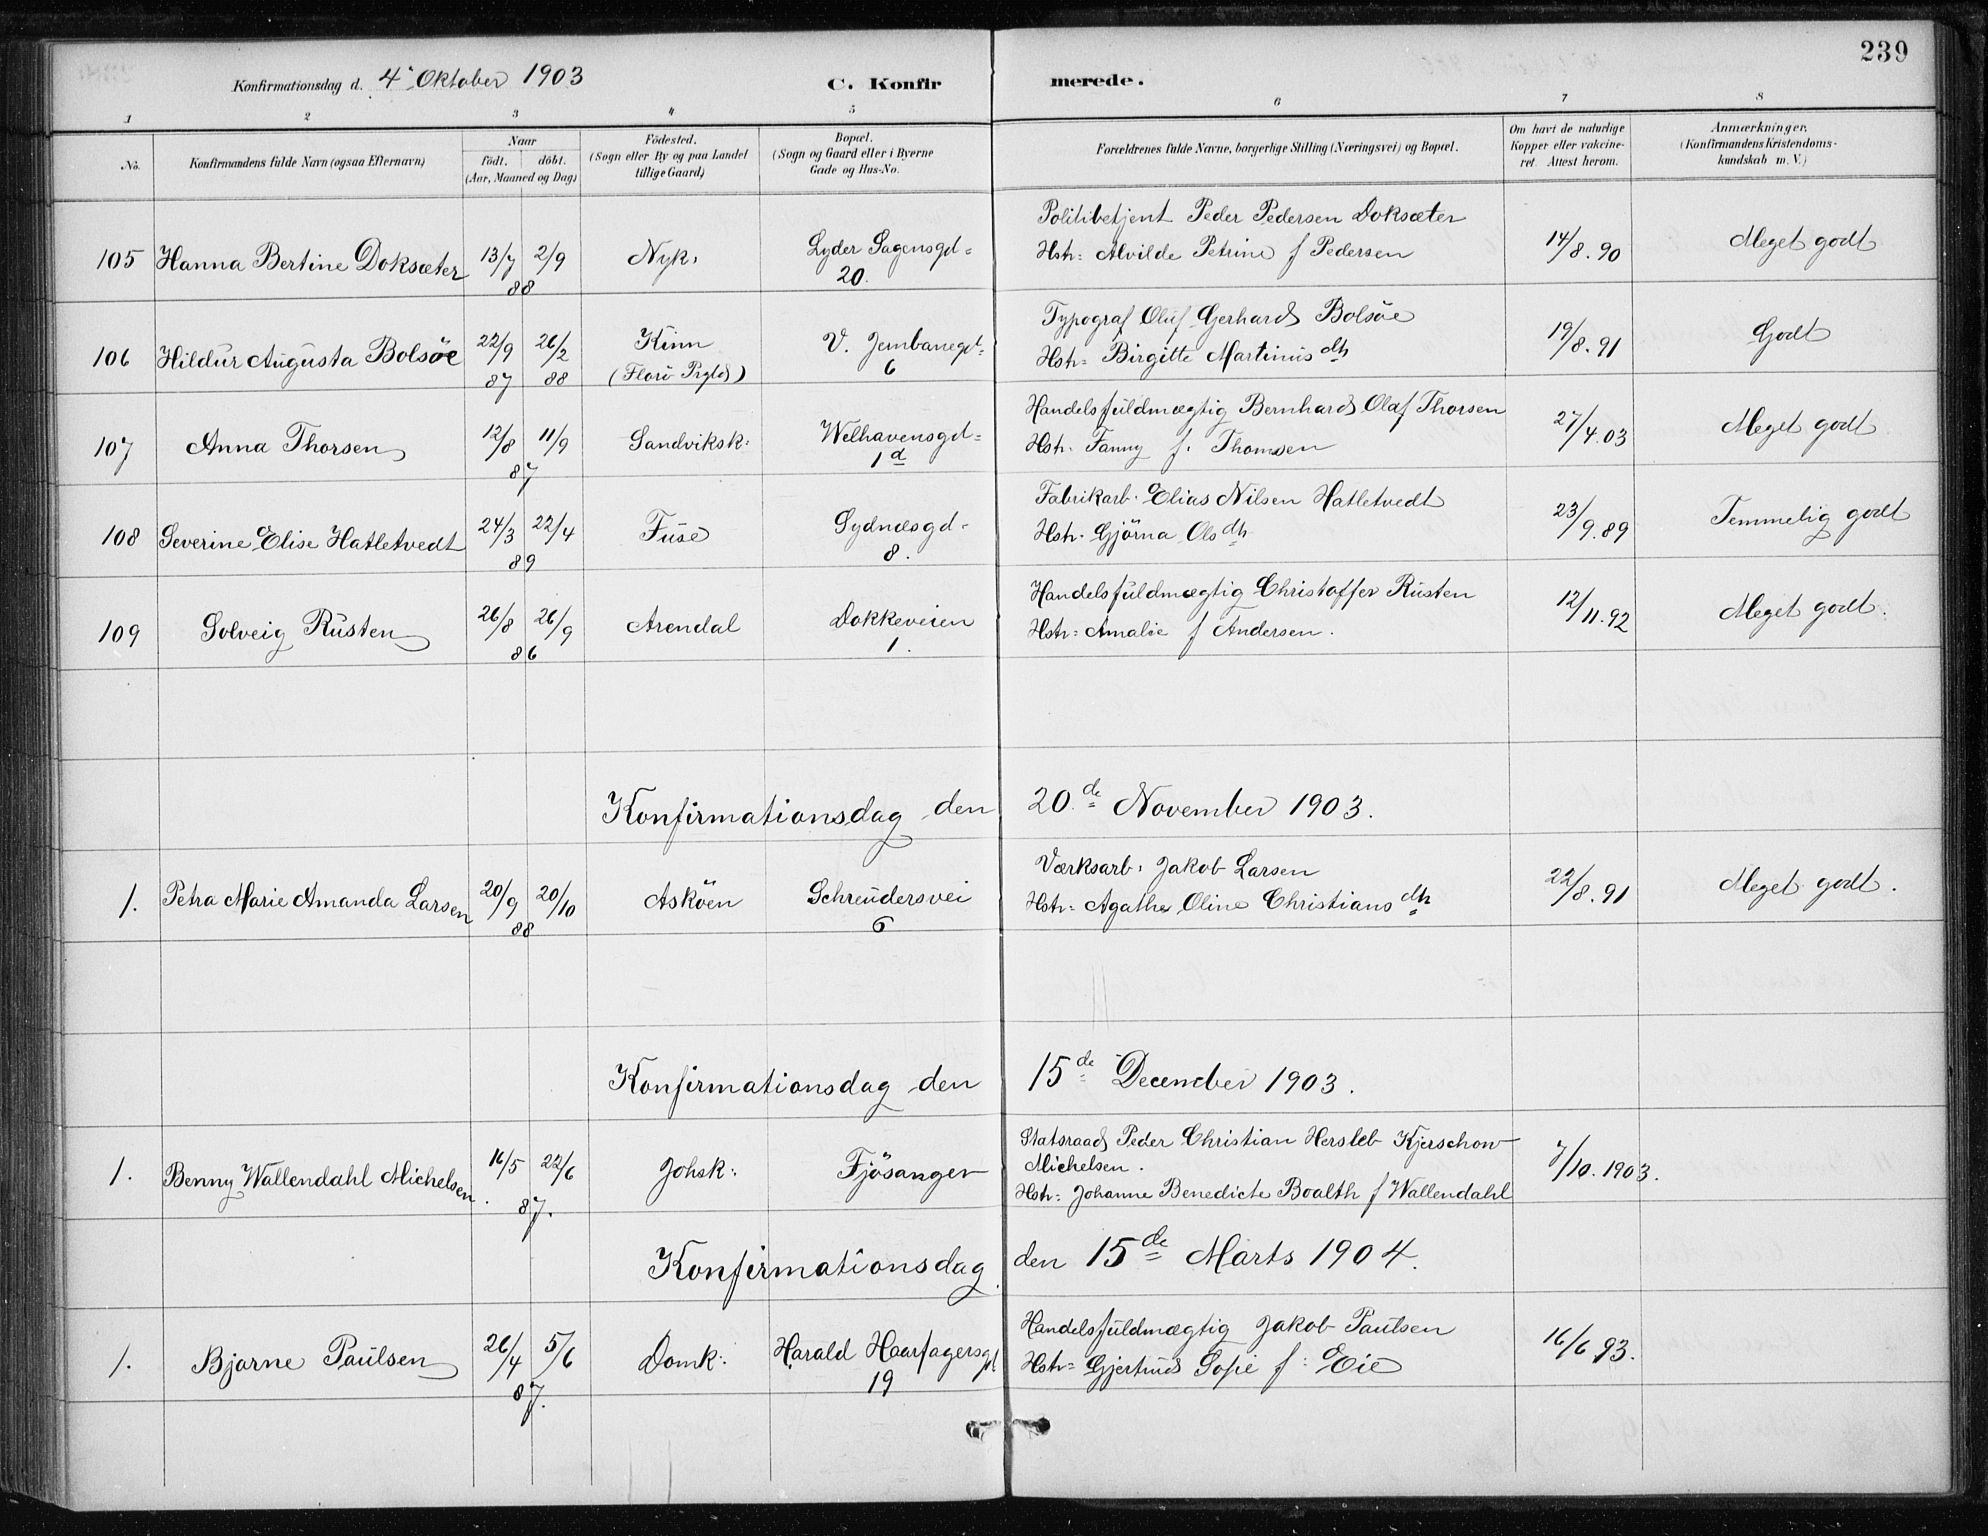 239
Konfirmationsdag d. 4' Oktober 1903 C. Konfirmerede.
1 2 3 4 5 6 7 8
No. Konfirmandens fulde Navn (ogsaa Efternavn) Naar født. døbt. (Aar, Maaned og Dag) Fødested. (Sogn eller By og paa Landet tillige Gaard) Bopæl. (Sogn og Gaard eller i Byerne Gade og Hus-No. Forældrenes fulde Navne, borgerlige Stilling (Næringsvei) og Bopæl. Om havt de naturlige Kopper eller vakcineret. Attest herom. Anmærkninger. (Konfirmandens Kristendomskundskab m. V.)
105 Hanna Bertine Doksæter 13/7 2/9 88 Nyk: Lyder Sagensgd= 20. Politibetjent Peder Pedersen Doksæter
Hstr: Alvilde Petrine f Pedersen 14/8.90 Meget godt
106 Hildur Augusta Bolsøe 22/9 87 26/2 88 Kinn (Florø Prgld) V. Jernbanegd= 6 Typograf Oluf Gerhard Bolsøe
Hstr= Birgitte Martinusdtr 19/8.91 Godt
107 Anna Thorsen 12/8 11/9 87 Sandviksk: Welhavensgd= 1a Handelsfuldmægtig Bernhard Olaf Thorsen
Hstr. Fanny f. Thomsen 27/4.03 Meget godt
108 Severine Elise Hatletvedt 24/3 22/4 89 Fuse Sydnæsgd- 8. Fabrikarb. Elias Nilsen Hatletvedt
Hstr. Gjørna Olsdtr 23/9.89 Temmelig godt
109 Solveig Rusten 26/8 26/9 86 Arendal Dokkeveien 1. Handelsfuldmægtig Christoffer Rusten
Hstr= Amalie f Andersen. 12/11.92 Meget godt.
Konfirmationsdag den 20de November 1903.
1. Petra Marie Amanda Larsen 20/9 20/10 88 Askøen Schreudersvei 6 Værksarb. Jakob Larsen
Hstr= Agathe Oline Christiansdtr 22/8.91 Meget godt.
Konfirmationsdag den 15de December 1903.
1. Benny Wallendahl Michelsen. 16/5 22/6 87. Johsk: Fjøsanger Statsraad Peder Christian Hersleb Kjerschow
Michelsen.
Hstr= Johanne Benedicte Boalth f Wallendahl 7/10.1903.
Konfirmationsdag den 15de Marts 1904.
1. Bjarne Paulsen 26/4 5/6 87. Domk: Harald Haarfagersgd 19 Handelsfuldmægtig Jakob Paulsen
Hstr= Gjertrud Sofie f: Eie 16/6 93.